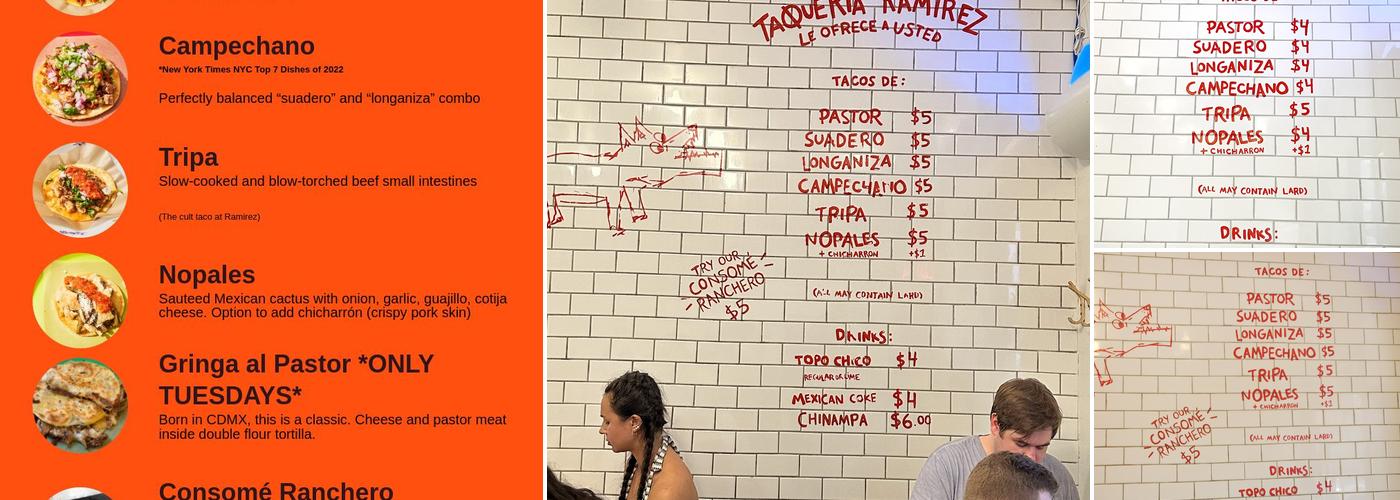 Campechano
*New York Times NYC Top 7 Dishes of 2022
Perfectly balanced “suadero” and “longaniza” combo
Tripa
Slow-cooked and blow-torched beef small intestines
(The cult taco at Ramirez)
Nopales
Sauteed Mexican cactus with onion, garlic, guajillo, cotija
cheese. Option to add chicharrón (crispy pork skin)
Gringa al Pastor *ONLY
TUESDAYS*
Born in CDMX, this is a classic. Cheese and pastor meat
inside double flour tortilla.
Consomé Ranchero
TAQUERIA RAMIREZ
LE OFRECE A USTED
TACOS DE:
PASTOR $5
SUADERO $5
LONGANIZA $5
CAMPECHANO $5
TRIPA $5
NOPALES $5
+ CHICHARRON +$1
TRY OUR
CONSOME
RANCHERO
$5
(ALL MAY CONTAIN LARD)
DRINKS:
TOPO CHICO $4
REGULAR OR LIME
MEXICAN COKE $4
CHINAMPA $6.00
PASTOR $4
SUADERO $4
LONGANIZA $4
CAMPECHANO $4
TRIPA $5
NOPALES $4
+ CHICHARRON +$1
(ALL MAY CONTAIN LARD)
DRINKS:
TACOS DE:
PASTOR $5
SUADERO $5
LONGANIZA $5
CAMPECHANO $5
TRIPA $5
NOPALES $5
+ CHICHARRON +$1
TRY OUR
CONSOME
RANCHERO
$5
(ALL MAY CONTAIN LARD)
DRINKS:
TOPO CHICO $4